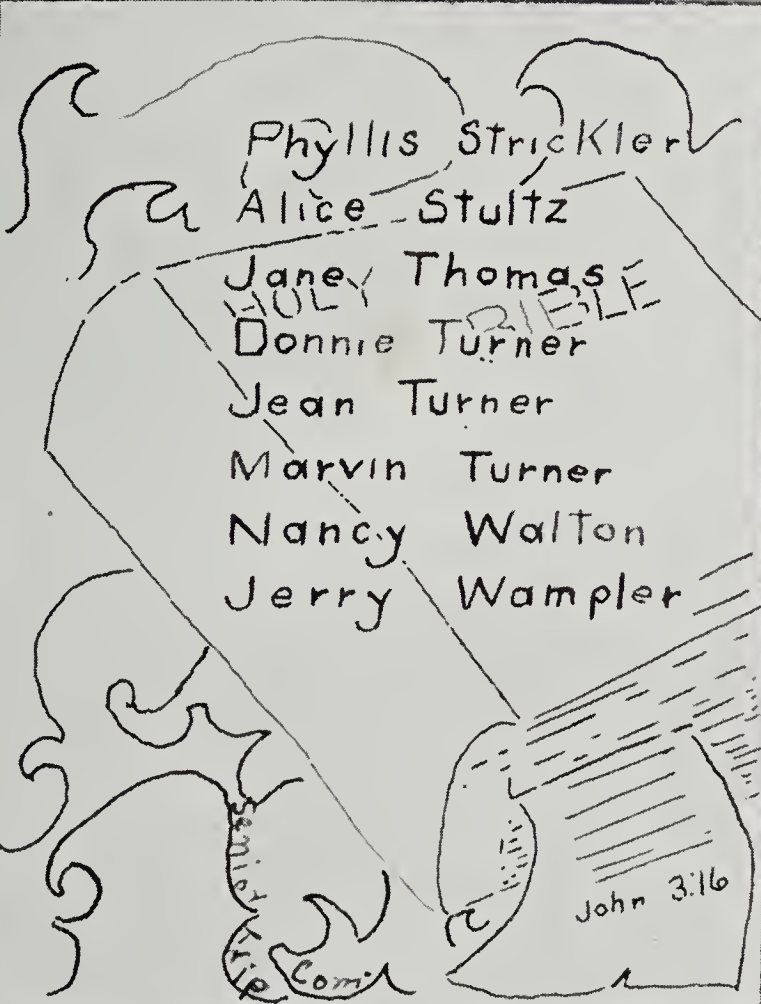 Phyllis Strickler
Alice Stultz
Janey Thomas
HOLY BIBLE
Donnie Turner
Jean Turner
Marvin Turner
Nancy Walton
Jerry Wampler
John 3:16